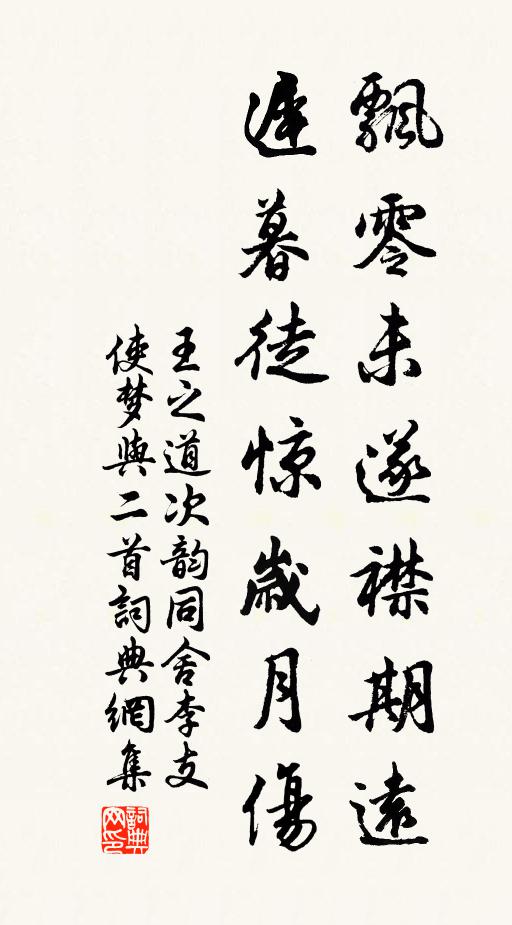 飄零未遂襟期遠
遲暮徒惊歲月傷
王之道次韵同舍李支
使梦與二首詞典網集
詞典
网印